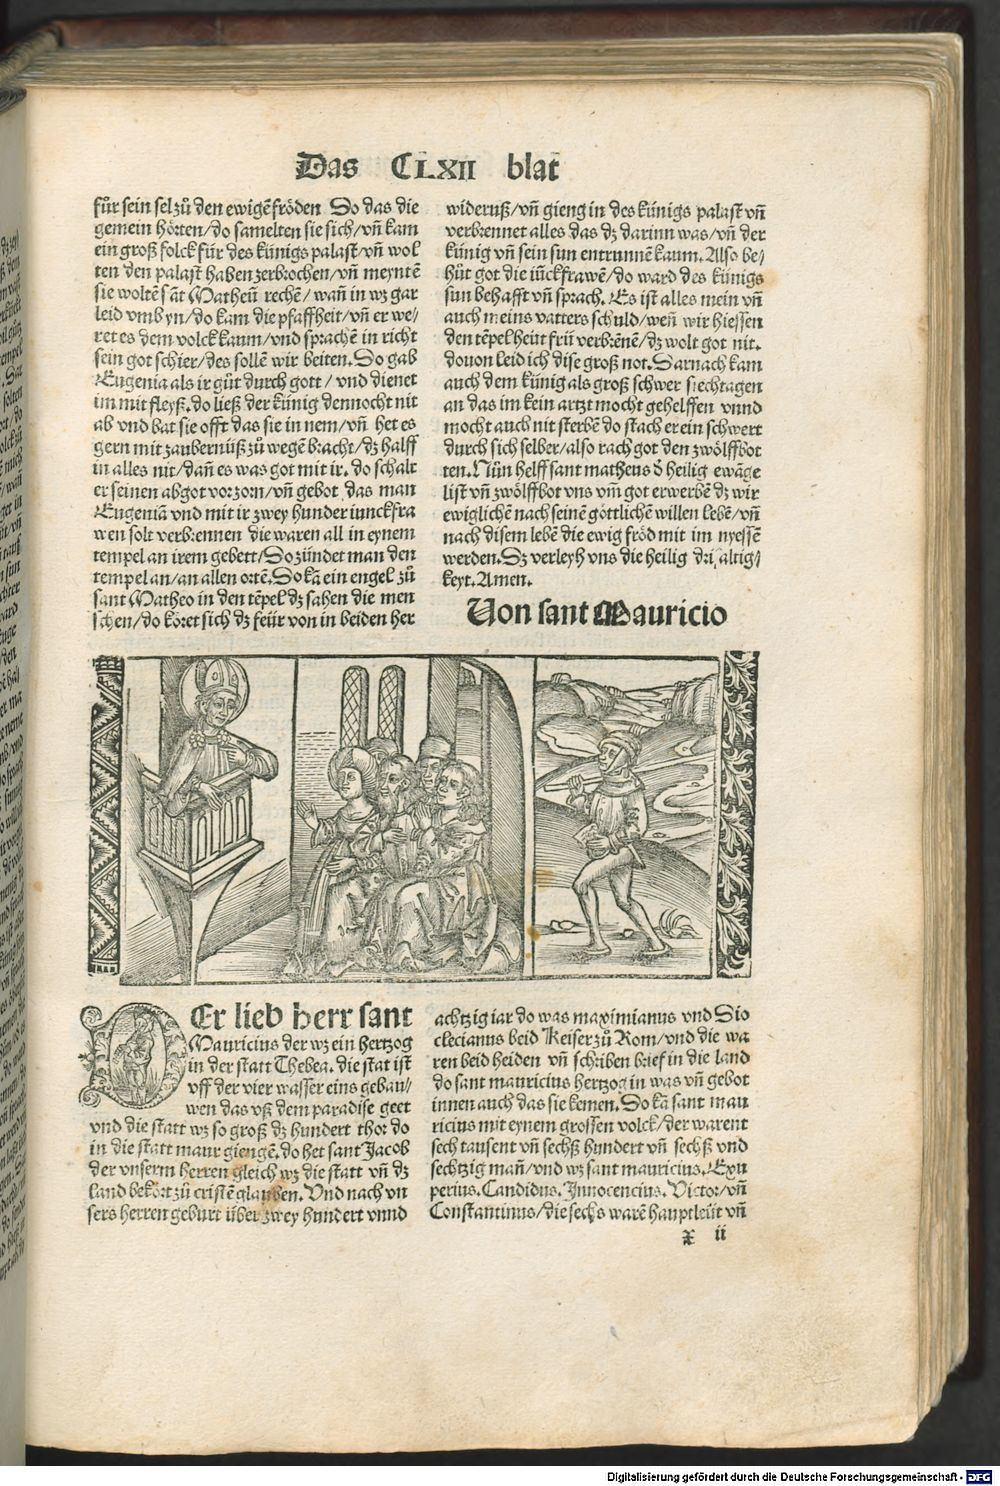 Das CLXII blat
für sein sel zů den ewigẽ fröden So das die
gemein hörten/do samelten sie sich/vñ kam
ein groß folck für des künigs palast/vñ wol
ten den palast haben zerbrochen/vñ meyntẽ
sie woltẽ sãt Matheũ rechẽ/wañ in wz gar
leid vmb yn/do kam die pfaffheit/vñ er we/
ret es dem volck kaum/vnd sprachẽ in richt
sein got schier/des sollẽ wir beiten. So gab
Eugenia als ir gůt durch gott/vnd dienet
im mit fleyß. do ließ der künig dennocht nit
ab vnd bat sie offt das sie in nem/vñ het es
gern mit zaubernüß zů wegẽ bracht/dz halff
in alles nit/dañ es was got mit ir. do schalt
er seinen abgot vor zorn/vñ gebot das man
Eugeniã vnd mit ir zwey hunder iunckfra
wen solt verbrennen die waren all in eynem
tempel an irem gebett/So zündet man den
tempel an/an allen ortẽ. So kã ein engel zů
sant Matheo in den tẽpel dz sahen die men
schen/do köret sich dz feür von in beiden her
wideruß/vñ gieng in des künigs palast vñ
verbrennet alles das dz darinn was/vñ der
künig vñ sein sun entrunnẽ kaum. Also be/
hüt got die iũckfrawẽ/do ward des künigs
sun behafft vñ sprach. Es ist alles mein vñ
auch meins vatters schuld/weñ wir hiessen
den tẽpel heüt frü verbrẽnẽ/dz wolt got nit.
douon leid ich dise groß not. Darnach kam
auch dem künig als groß schwer siechtagen
an das im kein artzt mocht gehelffen vnnd
mocht auch nit sterbẽ do stach er ein schwert
durch sich selber/also rach got den zwölffbot
ten. Nůn helff sant matheus ð heilig ewãge
list vñ zwölffbot vns vm̃ got erwerbẽ dz wir
ewiglichẽ nach seinẽ göttlichẽ willen lebẽ/vñ
nach disem lebẽ die ewig fröd mit im nyessẽ
werden. Dz verleyh vns die heilig dri altig/
keyt. Amen.
Von sant Mauricio
DEr lieb herr sant
Mauricius der wz ein hertzog
in der statt Thebea. die stat ist
vff der vier wasser eins gebau/
wen das vß dem paradise geet
vnd die statt wz so groß dz hundert thor do
in die statt maur giengẽ. do het sant Jacob
der vnserm herren gleich wz die statt vñ dz
land bekört zů cristẽ glauben. Vnd nach vn
sers herren geburt über zwey hundert vnnd
achtzig iar do was maximianus vnd Dio
clecianus beid Keiser zů Rom/vnd die wa
ren beid heiden vñ schriben brief in die land
do sant mauricius hertzog in was vñ gebot
innen auch das sie kemen. So kã sant mau
ricius mit eynem grossen volck/der warent
sech tausent vñ sechß hundert vñ sechß vnd
sechtzig mañ/vnd wz sant mauricius. Exu
perius. Candidus. Innocencius. Victor/vñ
Constantinus/die sechs warẽ hauptleüt vñ
x ii
Digitalisierung gefördert durch die Deutsche Forschungsgemeinschaft - DFG